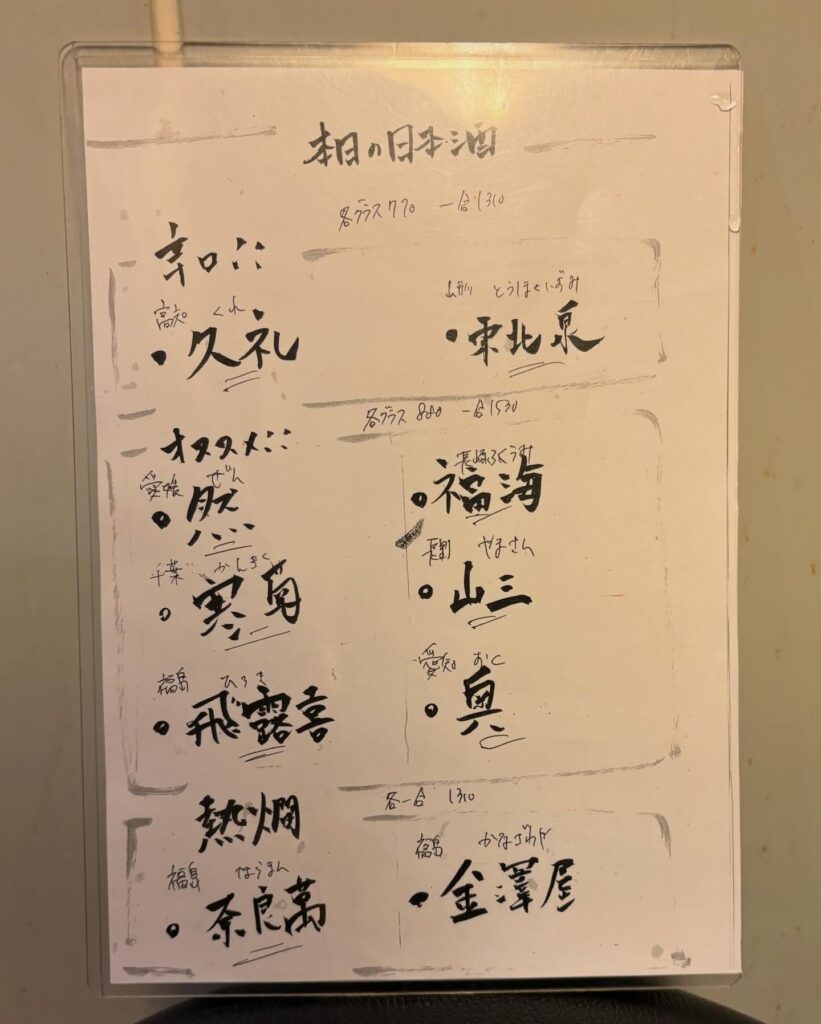 本日の日本酒
各グラス770 一合1310
辛口::
高知 くれ
・久礼
山形 とうほくいずみ
・東北泉
各グラス880 一合1530
オススメ::
愛媛 ぜん
・然
千葉 かんきく
・寒菊
福島 ひろき
・飛露喜
長崎 ふくうみ
・福海
長野 やまさん
・山三
愛知 おく
・奥
熱燗
各一合 1310
福島 ならまん
・奈良萬
福島 かなざわや
・金澤屋